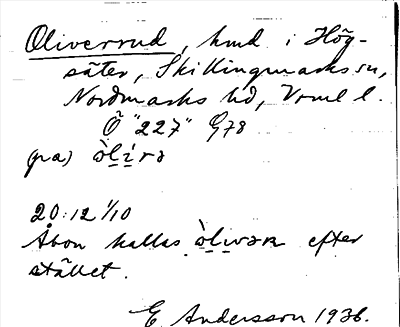 Oliverrud, hmd i Hög-
säter, Skillingmarks sn,
Nordmarks hd, Vrml l.
Ö "227" G78
(pa) òli̱rə
20:12 1/10
Åbon kallas òlivəʀ efter
stället.
E. Andersson 1936.